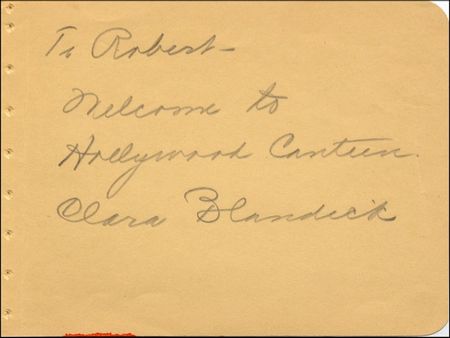 To Robert-
Welcome to
Hollywood Canteen.
Clara Blandick